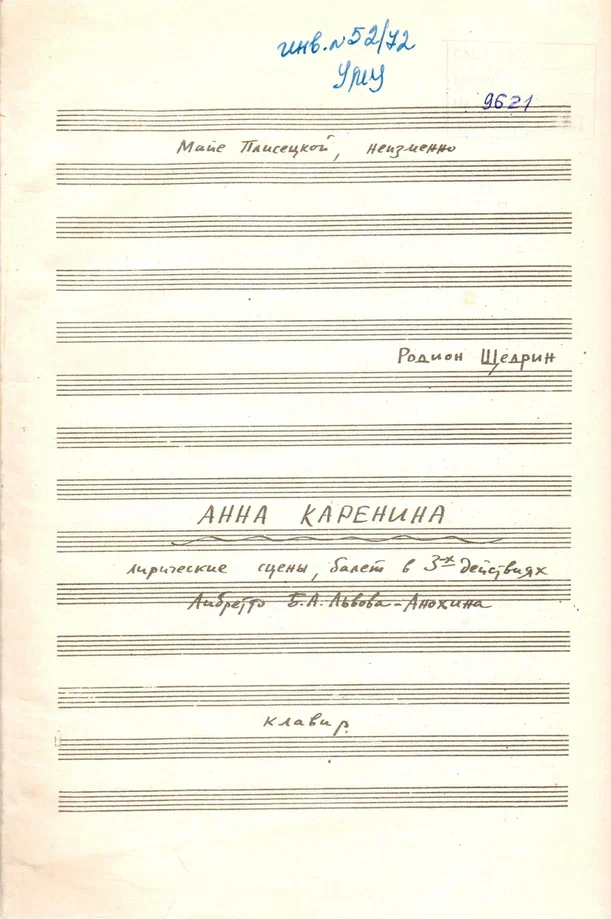 инв. № 52/72
УМУ
9621
Майе Плисецкой, неизменно
Родион Щедрин
АННА КАРЕНИНА
лирические сцены, балет в 3-х действиях
Либретто Б.А. Львова-Анохина
клавир.